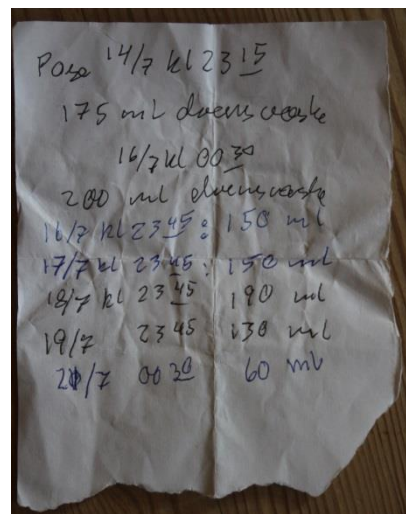 Pose 14/7 kl 23 15
175 ml drensvæske
16/7 kl 00 30
200 ml drensvæske
16/7 kl 23 45 : 150 ml
17/7 kl 23 45 : 150 ml
18/7 kl 23 45 190 ml
19/7 23 45 130 ml
21/7 00 30 60 ml